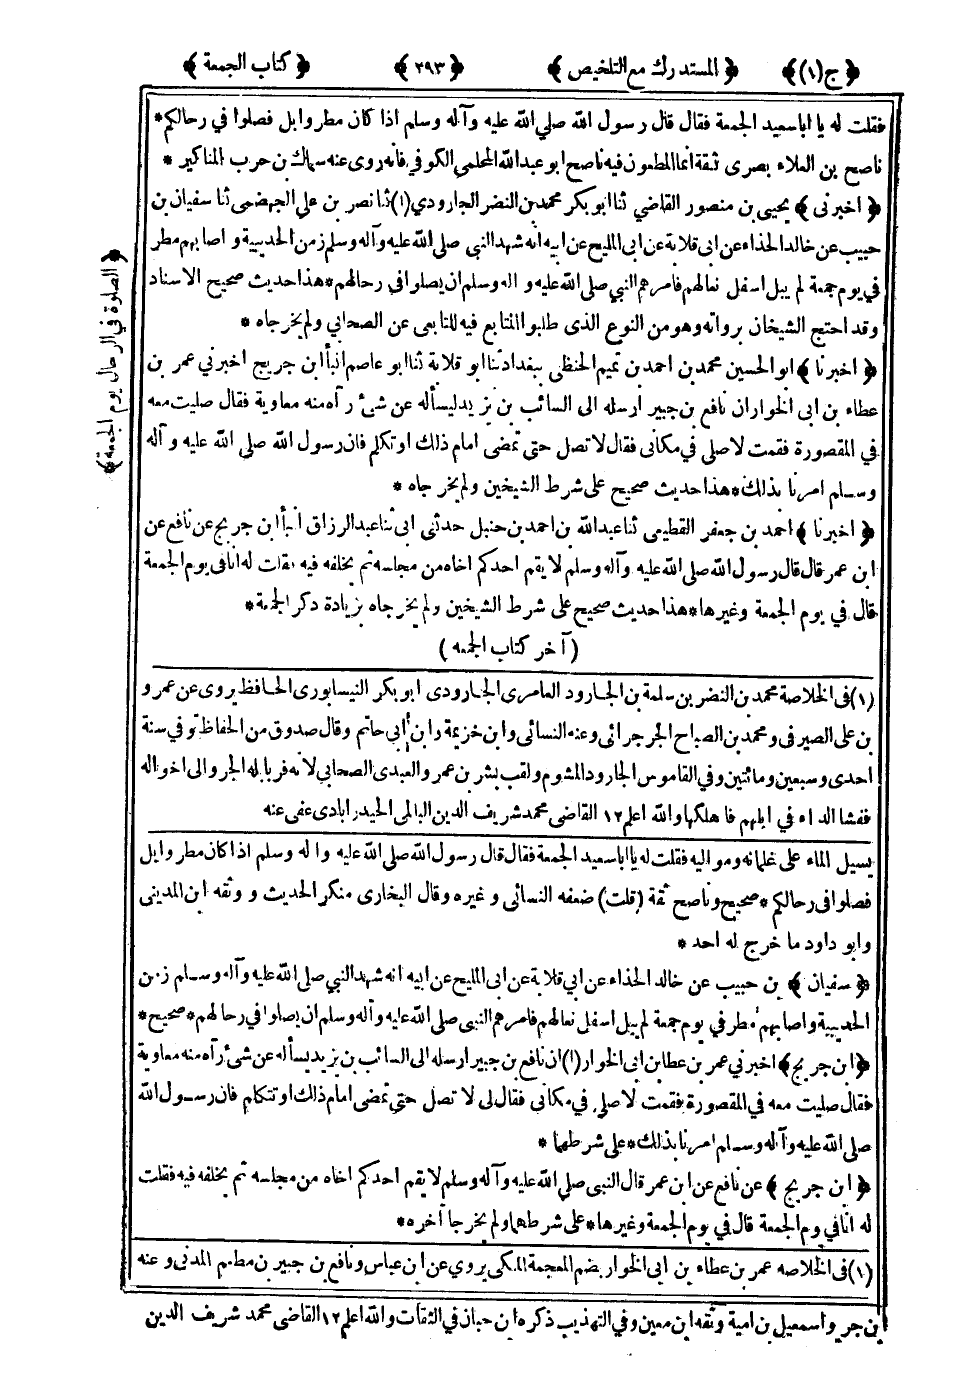 ﴿ ج(١) ﴾ ﴿ المستدرك مع التلخيص ﴾ ﴿ ٢٩٣ ﴾ ﴿ كتاب الجمعة ﴾
فقلت له يا ابا سعيد الجمعة فقال قال رسول الله صلي الله عليه وآله وسلم اذا كان مطر وابل فصلوا في رحالكم *
ناصح بن العلاء بصرى ثقة انما المطعون فيه ناصح ابو عبد الله المحلمي الكوفي فانه روى عنه سماك بن حرب المناكير *
﴿ اخبرنى ﴾ يحيى بن منصور القاضي ثنا ابو بكر محمد بن النضر الجارودي (١) ثنا نصر بن علي الجهضمى ثنا سفيان بن
حبيب عن خالد الحذاء عن ابى قلابة عن ابى المليح عن ابيه انه شهد النبي صلى الله عليه وآله وسلم زمن الحديبية و اصابهم مطر
في يوم جمعة لم يبل اسفل نعالهم فامرهم النبي صلى الله عليه و اله وسلم ان يصلوا في رحالهم * هذا حديث صحيح الاسناد
وقد احتج الشيخان برواته وهو من النوع الذى طلبوا المتابع فيه للتابعى عن الصحابي ولم يخرجاه *
﴿ اخبرنا ﴾ ابو الحسين محمد بن احمد بن تميم الحنظلى ببغداد ثنا ابو قلابة ثنا ابو عاصم انبأ ابن جريج اخبرني عمر بن
عطاء بن ابى الخوار ان نافع بن جبير ارسله الى السائب بن يزيد يسأله عن شئ رآه منه معاوية فقال صليت معه
في المقصورة فقمت لاصلى في مكانى فقال لا تصل حتى تمضى امام ذلك او تكلم فان رسول الله صلى الله عليه و آله
وسلم امرنا بذلك * هذا حديث صحيح على شرط الشيخين ولم يخرجاه *
﴿ اخبرنا ﴾ احمد بن جعفر القطيعى ثنا عبد الله بن احمد بن حنبل حدثنى ابى ثنا عبد الرزاق انبأ ابن جريج عن نافع عن
ابن عمر قال قال رسول الله صلى الله عليه وآله وسلم لا يقم احدكم اخاه من مجلسه ثم يخلفه فيه فقلت له انا في يوم الجمعة
قال في يوم الجمعة وغيرها * هذا حديث صحيح على شرط الشيخين ولم يخرجاه بزيادة ذكر الجمعة *
( آخر كتاب الجمعه )
﴿ الصلوة في الرحال يوم الجمعة ﴾
(١) فى الخلاصة محمد بن النضر بن سلمة بن الجارود العامرى الجارودى ابو بكر النيسابورى الحافظ يروى عن عمر و
بن على الصيرفى و محمد بن الصباح الجرجرائى وعنه النسائى وابن خزيمة وابن أبي حاتم وقال صدوق من الحفاظ توفي سنة
احدى وسبعين ومائتين وفي القاموس الجارود المشوم ولقب بشر بن عمرو العبدى الصحابي لانه فر بابله الجرد الى اخواله
ففشا الداء في ابلهم فاهلكها والله اعلم ١٢ القاضى محمد شريف الدين البالمى الحيدرابادى عفى عنه
يسيل الماء على غلمانه ومواليه فقلت له يا ابا سعيد الجمعة فقال قال رسول الله صلى الله عليه و اله وسلم اذا كان مطر وابل
فصلوا فى رحالكم * صحيح و ناصح ثقة (قلت) ضعفه النسائى و غيره وقال البخارى منكر الحديث و وثقه ابن المدينى
وابو داود ما خرج له احد *
﴿ سفيان ﴾ بن حبيب عن خالد الحذاء عن ابي قلابة عن ابى المليح عن ابيه انه شهد النبي صلى الله عليه وآله وسلم زمن
الحديبية واصابهم مطر في يوم جمعة لم يبل اسفل نعالهم فامرهم النبى صلى الله عليه وآله وسلم ان يصلوا في رحالهم * صحيح *
﴿ ابن جريج ﴾ اخبرني عمر بن عطاء بن ابى الخوار (١) ان نافع بن جبير ارسله الى السائب بن يزيد يسأله عن شئ رآه منه معاوية
فقال صليت معه في المقصورة فقمت لاصلى في مكانى فقال لى لا تصل حتى تمضى امام ذلك او تتكلم فان رسول الله
صلى الله عليه وآله وسلم امرنا بذلك * على شرطهما *
﴿ ابن جريج ﴾ عن نافع عن ابن عمر قال النبى صلى الله عليه و آله وسلم لا يقم احدكم اخاه من مجلسه ثم يخلفه فيه فقلت
له انا في يوم الجمعة قال في يوم الجمعة وغيرها * على شرطهما ولم يخرجا آخره *
(١) فى الخلاصه عمر بن عطاء بن ابى الخوار بضم المعجمة المكى يروي عن ابن عباس ونافع بن جبير بن مطعم المدنى و عنه
ابن جريج و اسمعيل بن امية وثقه ابن معين وفي التهذيب ذكره ابن حبان في الثقات والله اعلم ١٢ القاضى محمد شريف الدين